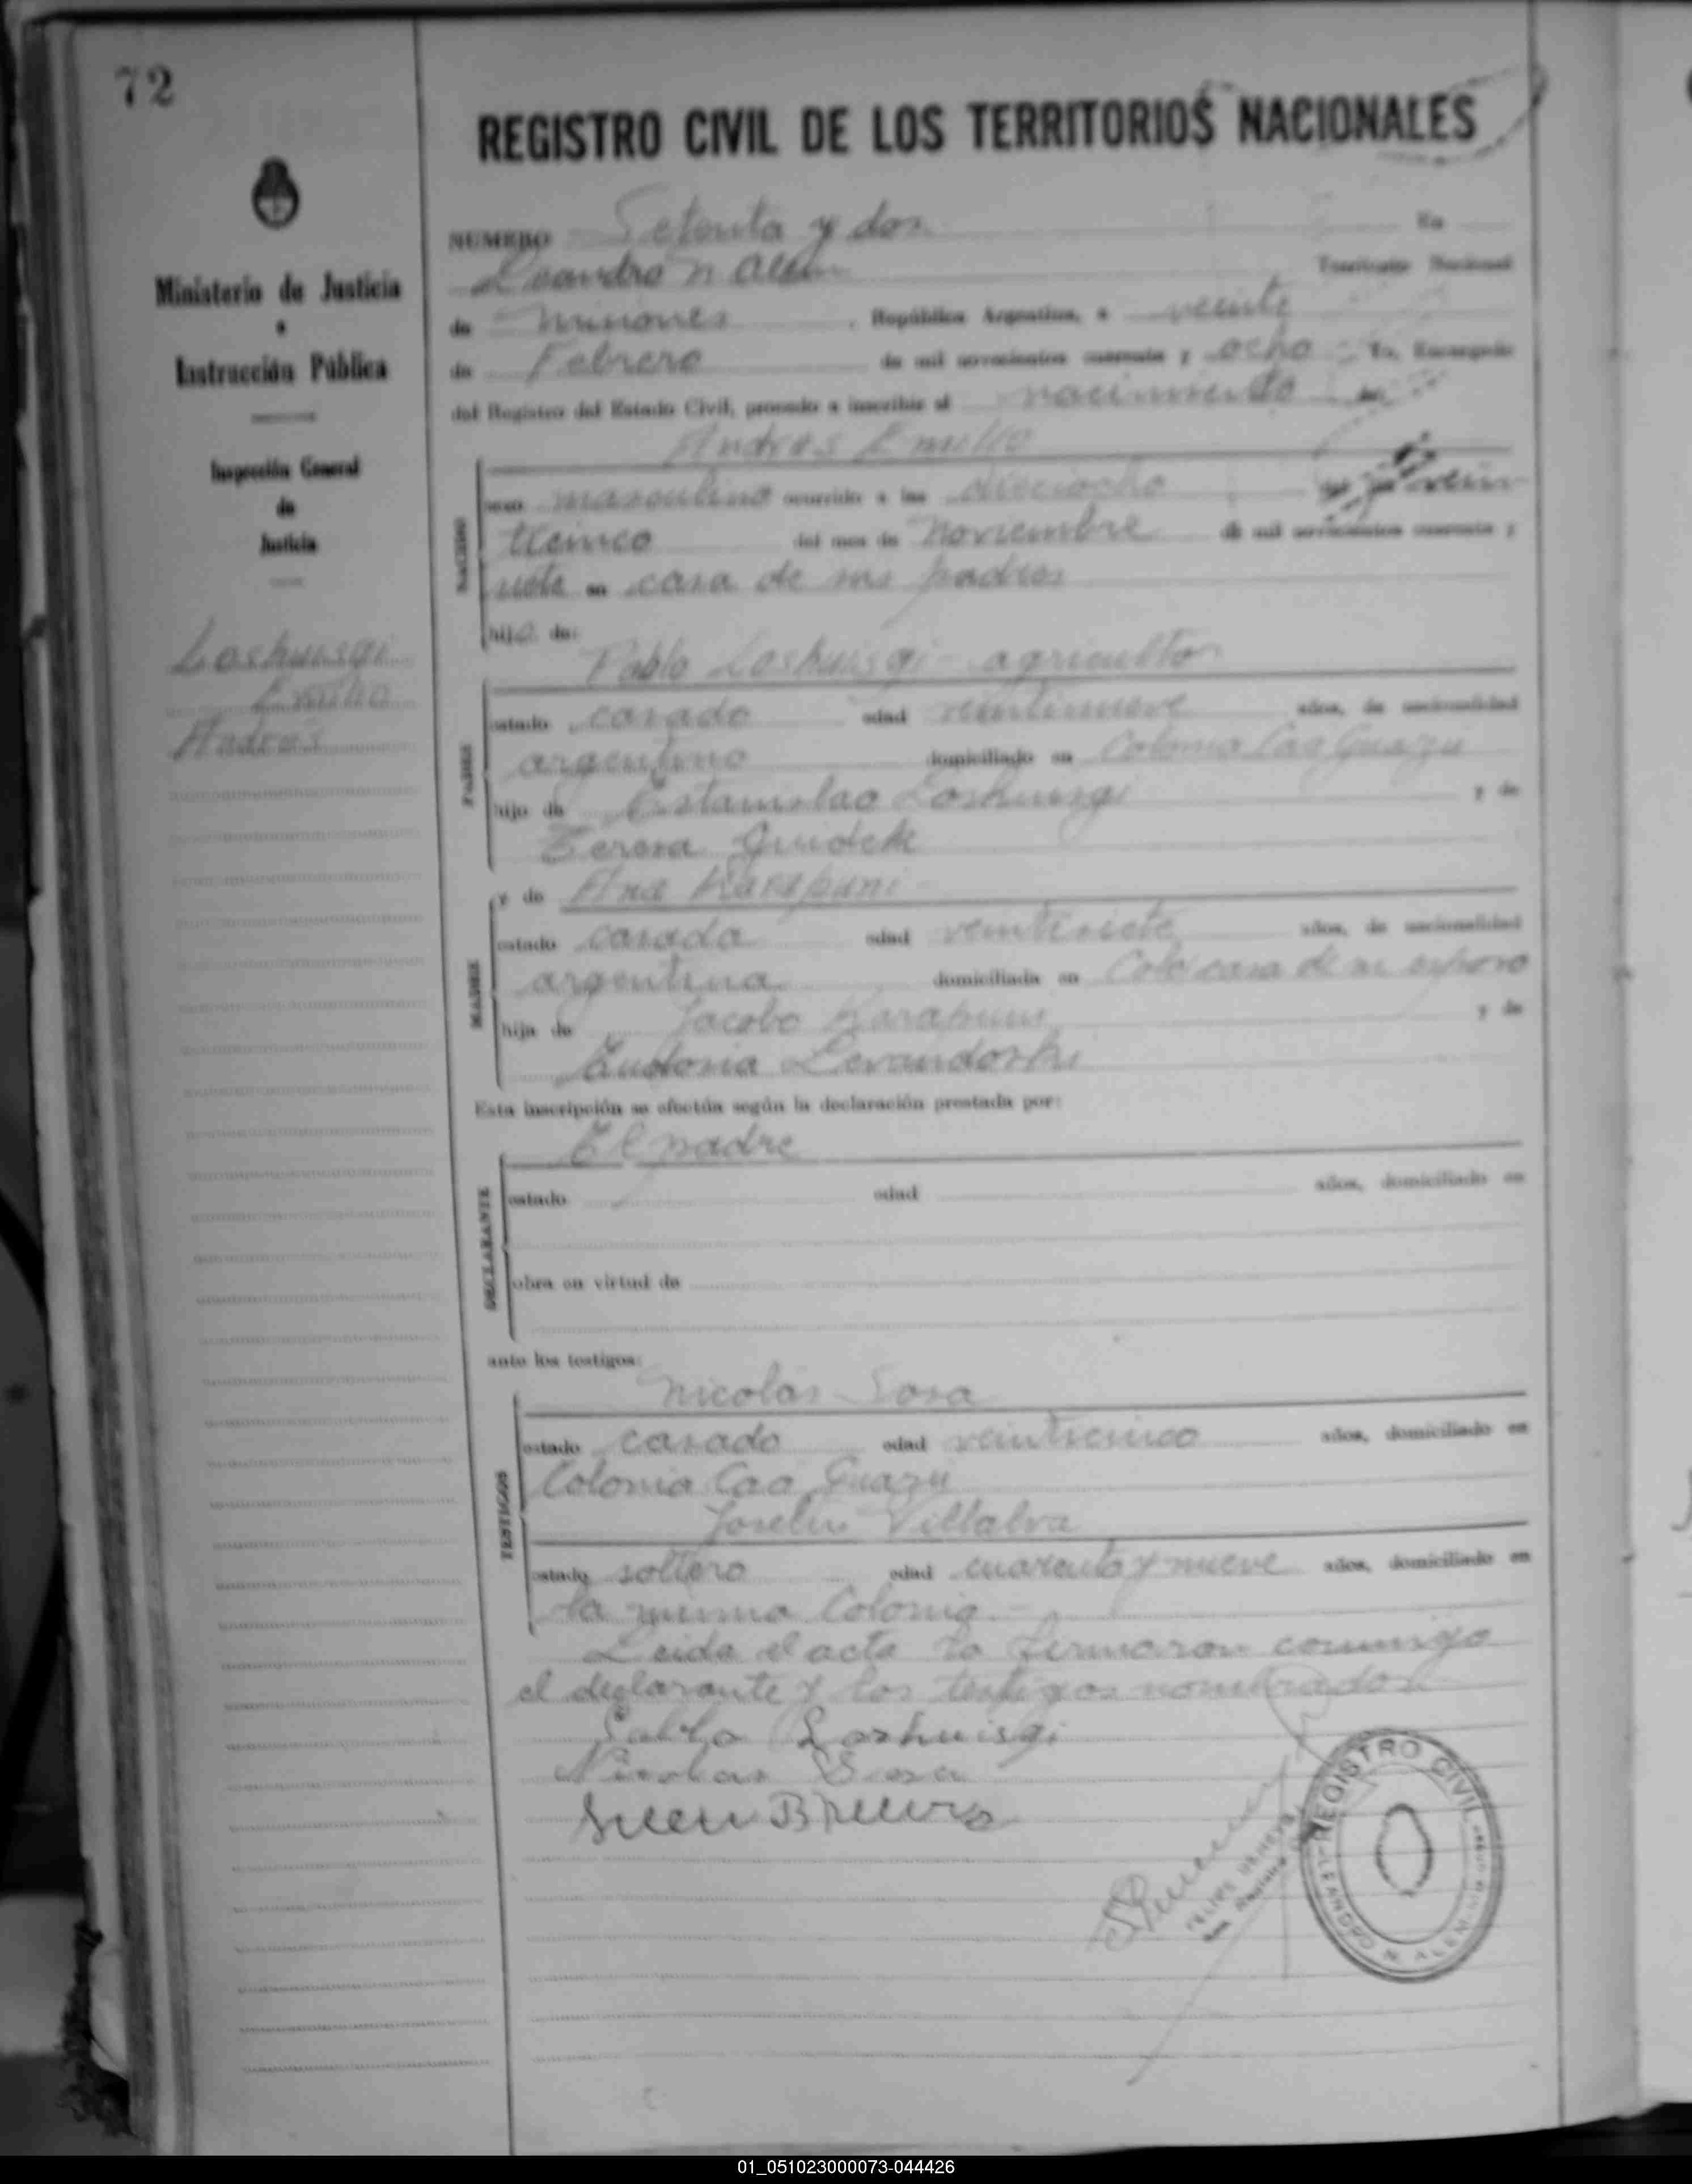 72
REGISTRO CIVIL DE LOS TERRITORIOS NACIONALES
Ministerio de Justicia
e
Instrucción Pública
Inspección General
de
Justicia
Loshuisgi
Emilio
Andrés
NUMERO Setenta y dos En
Leandro N Alem Territorio Nacional
de Misiones, República Argentina, a veinte
de Febrero de mil novecientos cuarenta y ocho Yo, Encargado
del Registro del Estado Civil, procedo a inscribir el nacimiento de
Andrés Emilio
NACIDO
sexo masculino ocurrido a las dieciocho vein
ticinco del mes de Noviembre de mil novecientos cuarenta y
siete en casa de sus padres
hijo de:
Pablo Loshuisgi - agricultor
PADRE
estado casado edad veintinueve años, de nacionalidad
argentino domiciliado en Colonia Caa Guazú
hijo de Estanislao Loshuisgi y de
Teresa
y de Ana Karapuni
MADRE
estado casada edad veintisiete años, de nacionalidad
argentina domiciliada en casa de su esposo
hija de Jacobo y de
Levandoski
Esta inscripción se efectúa según la declaración prestada por:
El padre
DECLARANTE
estado edad años, domiciliado en
obra en virtud de
ante los testigos:
Nicolás Sosa
TESTIGOS
estado casado edad veinticinco años, domiciliado en
Colonia Caa Guazú
Joselin Villalva
estado soltero edad cuarenta y nueve años, domiciliado en
la misma Colonia.
Leida el acta la firmaron conmigo
el declarante y los testigos nombrados
Pablo Loshuisgi
Nicolas Sosa
REGISTRO CIVIL
LEANDRO N. ALEM
01_051023000073-044426